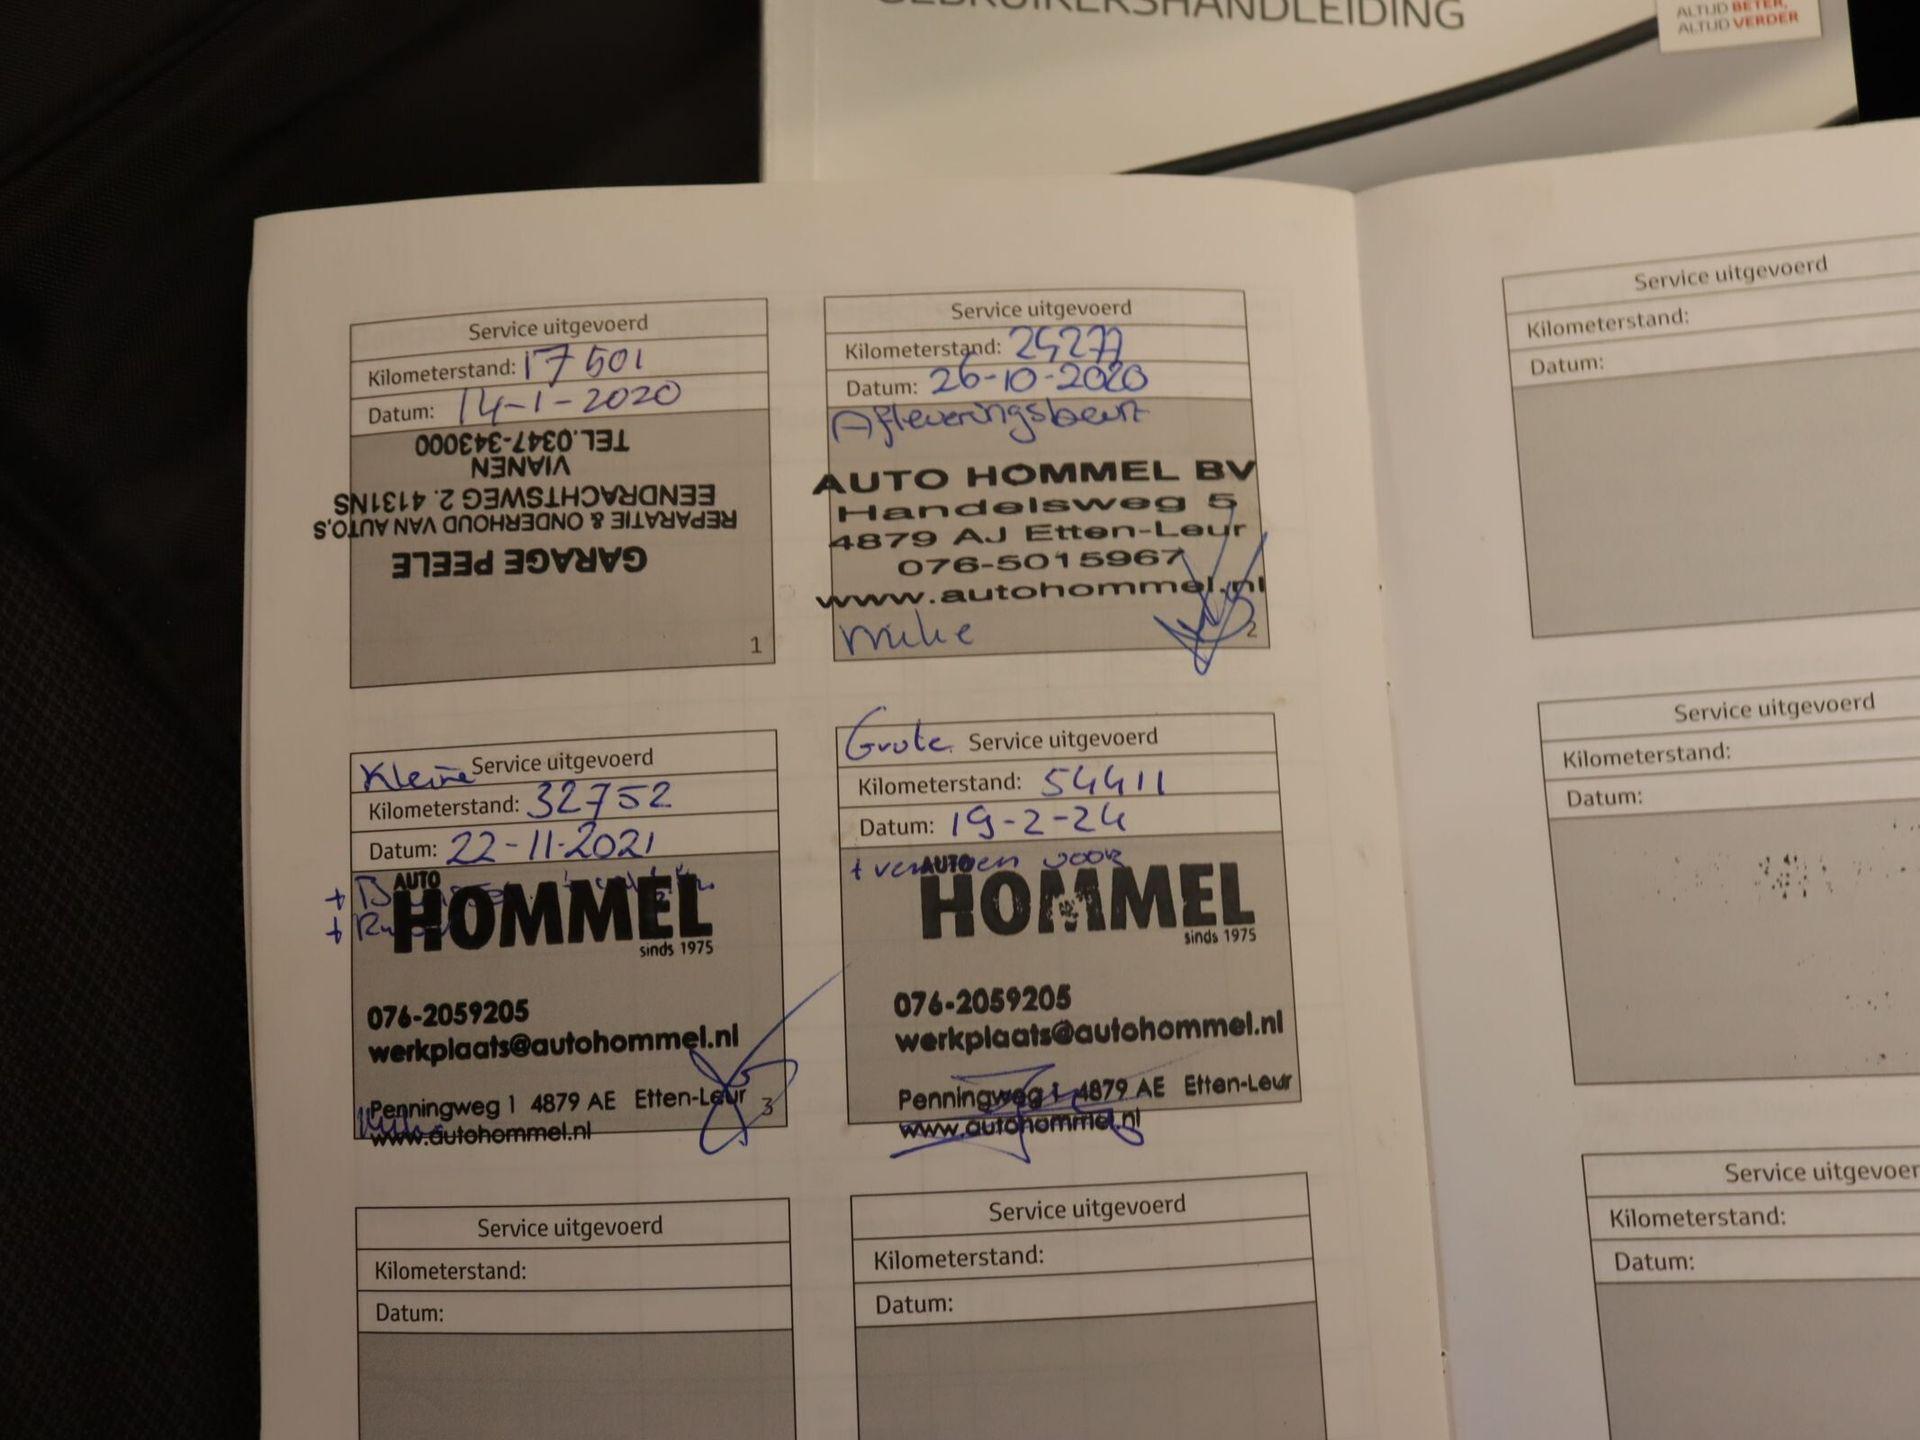 GEBRUIKERSHANDLEIDING
ALTIJD BETER,
ALTIJD VERDER
Service uitgevoerd
Kilometerstand: 17501
Datum: 14-1-2020
GARAGE PEELE
REPARATIE & ONDERHOUD VAN AUTO,S
EENDRACHTSWEG 2. 4131NS
VIANEN
TEL.0347-343000
1
Service uitgevoerd
Kilometerstand: 25277
Datum: 26-10-2020
Afleveringsbeurt
AUTO HOMMEL BV
Handelsweg 5
4879 AJ Etten-Leur
076-5015967
www.autohommel.nl
2
Kleine Service uitgevoerd
Kilometerstand: 32752
Datum: 22-11-2021
AUTO
HOMMEL
sinds 1975
076-2059205
werkplaats@autohommel.nl
Penningweg 1 4879 AE Etten-Leur
3
www.autohommel.nl
Grote Service uitgevoerd
Kilometerstand: 54411
Datum: 19-2-24
+ voor
AUTO
HOMMEL
sinds 1975
076-2059205
werkplaats@autohommel.nl
Penningweg 1 4879 AE Etten-Leur
www.autohommel.nl
Service uitgevoerd
Kilometerstand:
Datum:
Service uitgevoerd
Kilometerstand:
Datum:
Service uitgevoerd
Kilometerstand:
Datum:
Service uitgevoerd
Kilometerstand:
Datum:
Service uitgevoer
Kilometerstand:
Datum: